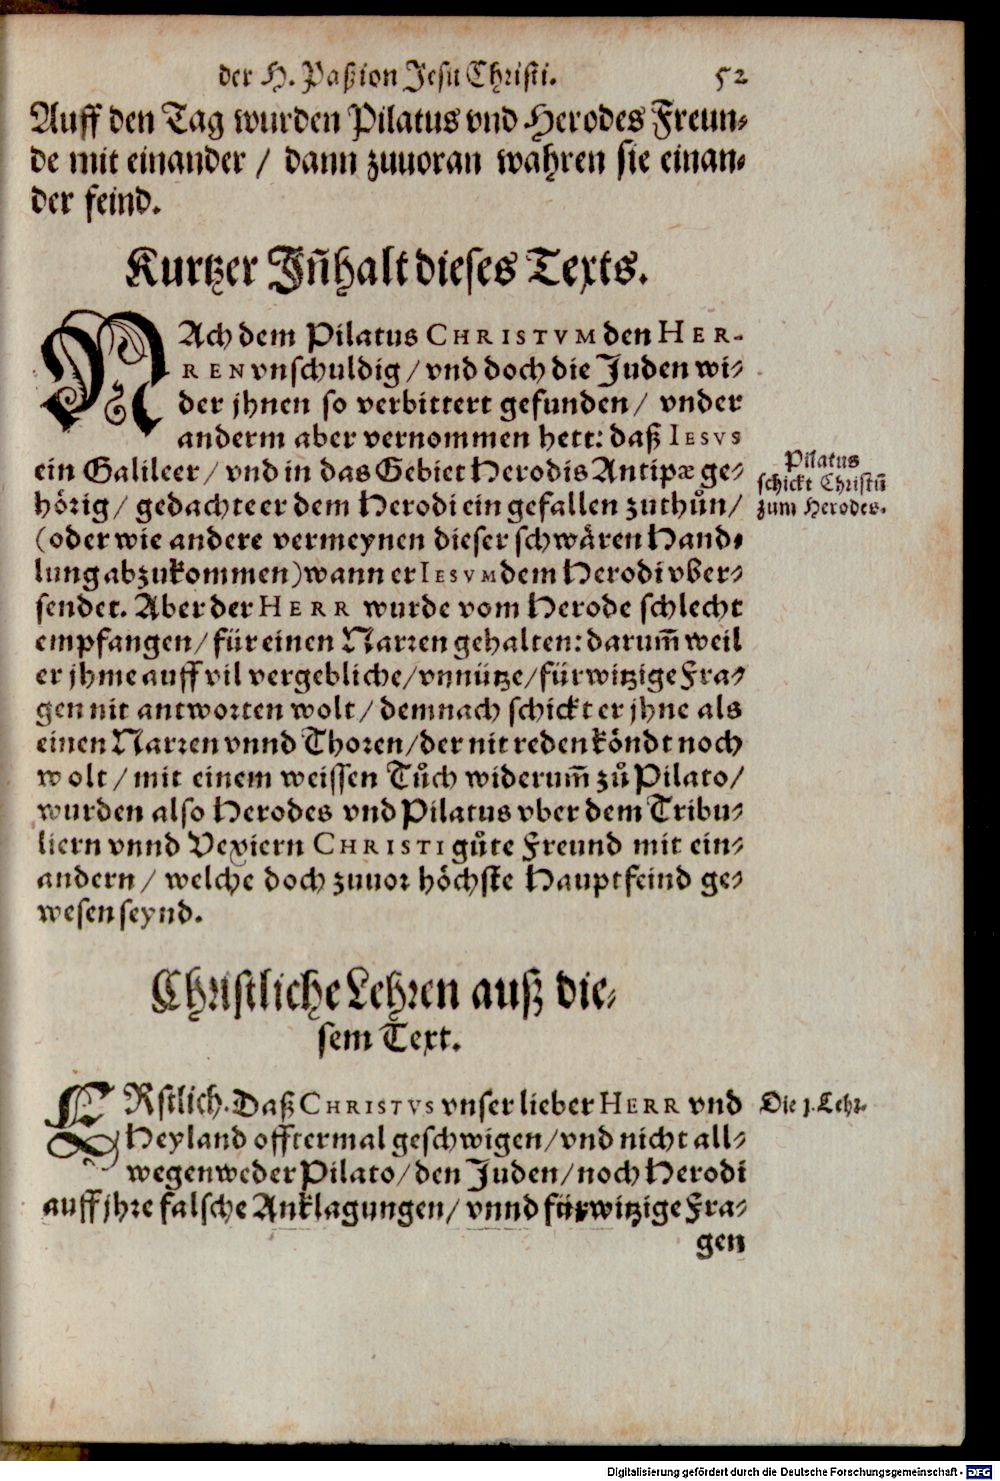 der H. Paßion Jesu Christi. 52
Auff den Tag wurden Pilatus vnd Herodes Freun-
de mit einander / dann zuuoran wahren sie einan-
der feind.
Kurtzer Jn̄halt dieses Texts.
NAch dem Pilatus CHRISTVM den HER-
REN vnschuldig / vnd doch die Juden wi-
der jhnen so verbittert gefunden / vnder
anderm aber vernommen hett: daß IESVS
ein Galileer / vnd in das Gebiet Herodis Antipæ ge-
hörig / gedachte er dem Herodi ein gefallen zuthůn /
(oder wie andere vermeynen dieser schwären Hand-
lung abzukommen) wann er IESVM dem Herodi vber-
sendet. Aber der HERR wurde vom Herode schlecht
empfangen / für einen Narren gehalten: darum̄ weil
er jhme auff vil vergebliche / vnnütze / fürwitzige Fra-
gen nit antworten wolt / demnach schickt er jhne als
einen Narren vnnd Thoren / der nit reden köndt noch
wolt / mit einem weissen Tůch widerum̄ zů Pilato /
wurden also Herodes vnd Pilatus vber dem Tribu-
liern vnnd Vexiern CHRISTI gůte Freund mit ein-
andern / welche doch zuuor höchste Hauptfeind ge-
wesen seynd.
Pilatus
schickt Christū
zum Herodes.
Christliche Lehren auß die-
sem Text.
ERstlich. Daß CHRISTVS vnser lieber HERR vnd
Heyland offtermal geschwigen / vnd nicht all-
wegen weder Pilato / den Juden / noch Herodi
auff jhre falsche Anklagungen / vnnd fürwitzige Fra-
gen
Die 1. Lehr.
Digitalisierung gefördert durch die Deutsche Forschungsgemeinschaft - DFG